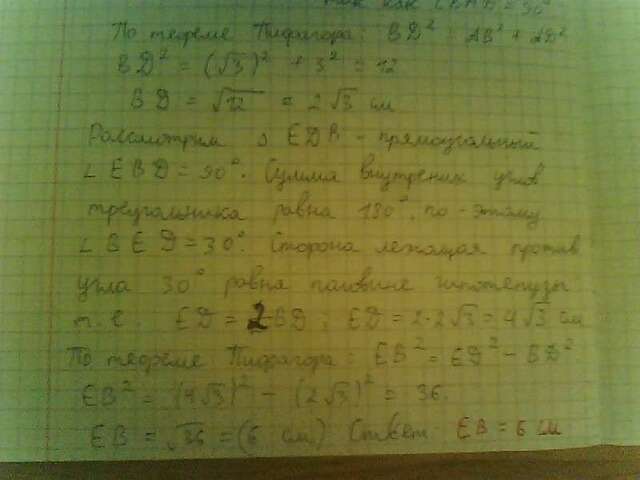 так как ∠BAD = 90°
По теореме Пифагора: BD² = AB² + AD²
BD² = (√3)² + 3² = 12
BD = √12 = 2√3 см
Рассмотрим △ EDB - прямоугольный
∠ EBD = 90°. Сумма внутрених углов
треугольника равна 180°, по-этому
∠ BED = 30°. Сторона лежащая против
угла 30° равна паловине гипотенузы
т.е. ED = 2BD; ED = 2·2√3 = 4√3 см
По теореме Пифагора: EB² = ED² - BD²
EB² = (4√3)² - (2√3)² = 36.
EB = √36 = (6 см) Ответ: EB = 6 см